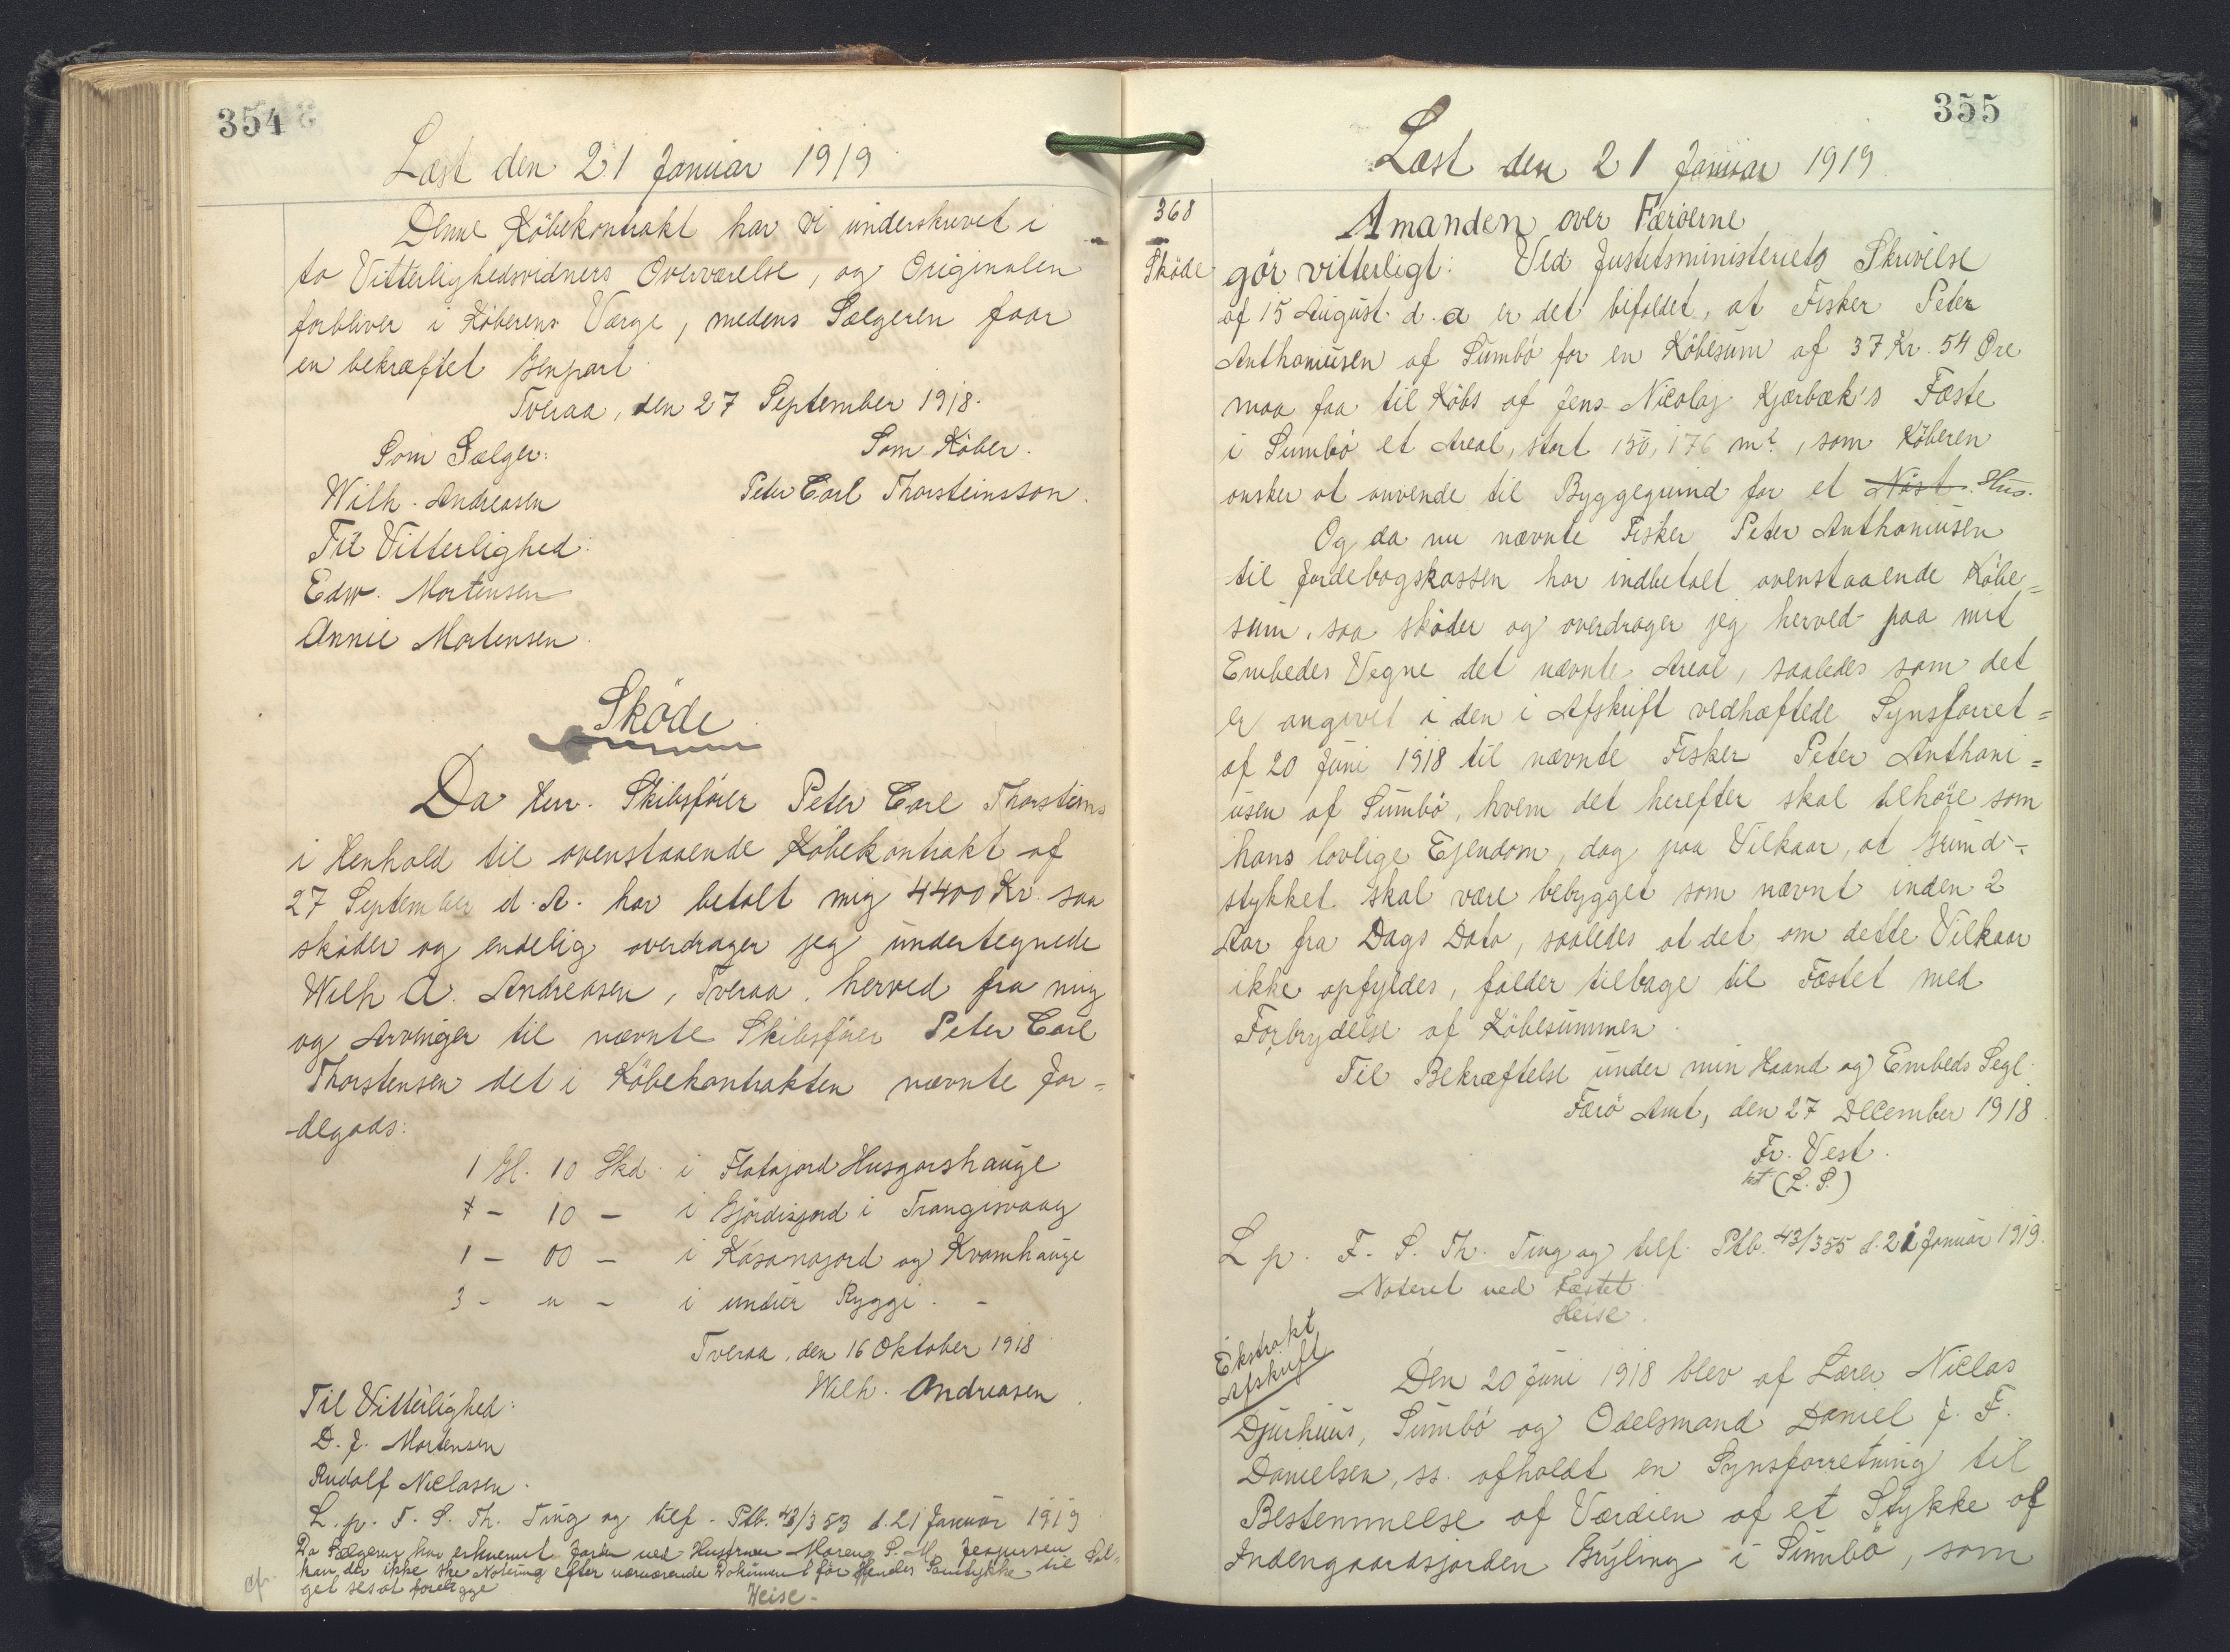 354
Læst den 21 Januar 1919
Denne Köbekontrakt har vi underskrevet i
to Vitterlighedsvidners Overværelse, og Originalen
forbliver i Köberens Værge, medens Sælgeren faar
en bekræftet Genpart
Tveraa, den 27 September 1918.
Som Sælger: Som Köber.
Wilh. Andreasen Peter Carl Thorsteinsson.
Til Vitterlighed:
Edw. Mortensen
Annie Mortensen
Sköde
Da Herr. Skibsförer Peter Carl Thorsteins
i Henhold til ovenstaaende Köbekontrakt af
27 September d. A. har betalt mig 4400 Kr. saa
sköder og endelig overdrager jeg undertegnede
Wilh A. Andreasen, Tveraa, herved fra mig
og Arvinger til nævnte Skibsförer Peter Carl
Thorstensen det i Köbekontrakten nævnte Jor=
-degods:
1 Gl. 10 Skd. i Flatajord Husgarshauge
+ - 10 - i Gjördisjord i Trangisvaag
1 - 00 - i Kasanajord og Kvamhauge
3 - " - i undir Ryggi. -
Tveraa, den 16 Oktober 1918
Wilh. Andreasen
Til Vitterlighed:
D. J. Mortensen
Rudolf Niclasen.
L. p. F. S. Th. Ting og tilf. Ptb. 43/353 d. 21 Januar 1919
Da Sælgeren har erhvervet Jorden ved Hustruen Maren S. M. Jespersen
kan der ikke ske Notering efter nærværende Dokument för Hendes Samtykke til Sal=
get ses at foreligge
cfr.
Heise.
355
Læst den 21 Januar 1919
368
Sköde
Amanden over Færöerne
gör vitterligt: Ved Justitsministeriets Skrivelse
af 15 August d. a er det bifaldet, at Fisker Peter
Anthoniusen af Sumbö for en Köbesum af 37 Kr. 54 Øre
maa faa til Köbs af Jens Nicolaj Kjærbæk's Fæste
i Sumbö et Areal, stort 150,176 m², som Köberen
ønsker at anvende til Byggegrund for et Nöst. Hus.
Og da nu nævnte Fisker Peter Anthoniusen
til Jordebogskassen har indbetalt ovenstaaende Köbe=
sum, saa sköder og overdrager jeg herved paa mit
Embedes Vegne det nævnte Areal, saaledes som det
er angivet i den i Afskrift vedhæftede Synsforret=
af 20 Juni 1918 til nævnte Fisker Peter Anthoni=
usen af Sumbö, hvem det herefter skal tilhöre som
hans lovlige Ejendom, dog paa Vilkaar, at Grund=
stykket skal være bebygget som nævnt inden 2
Aar fra Dags Dato, saaledes at det, om dette Vilkaar
ikke opfyldes, falder tilbage til Fæstet med
Forbrydelse af Köbesummen
Til Bekræftelse under min Haand og Embeds Segl.
Færö Amt, den 27 December 1918
Fr. Vest.
kst (L. S.)
L p. F. S. Th. Ting og tilf. Ptb. 43/355 d. 21 Januar 1919.
Noteret ved Fæstet
Heise.
Ekstrakt
Afskrift
Den 20 Juni 1918 blev af Lærer Niclas
Djurhuus, Sumbö og Odelsmand Daniel J. F.
Danielsen, ss. afholdt en Synsforretning til
Bestemmelse af Værdien af et Stykke af
Indengaardsjorden Grýling i Sumbö, som